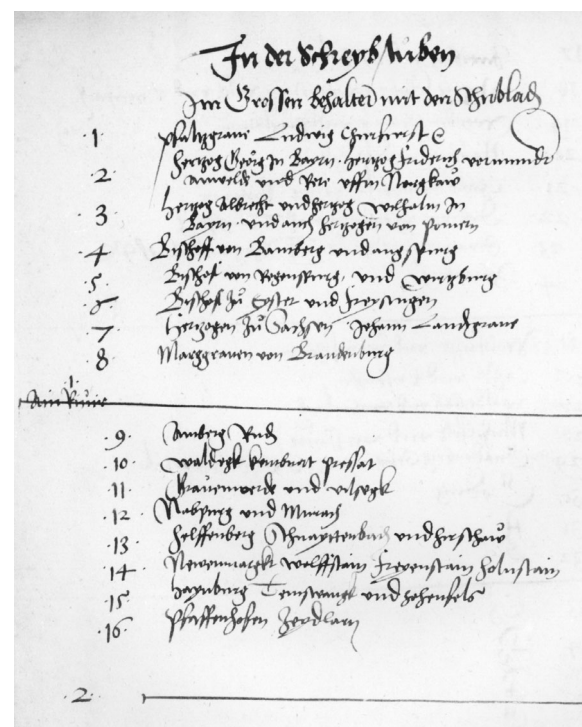 In der Schreybstuben
Im Grossen behalter mit den Schublad
1 Pfaltzgrave Ludwig Churfurst
2 Hertzog Georg In Bayrn. hertzog friderich vormundt
anwelde und Rete uffm Norgkaw
3 Hertzog Albrecht und hertzog wilhalm In
Bayrn. und auch Hertzogen von pomern
4 Bischoff von Bamberg und augspurg
5. Bischof von Regenspurg. und wirtzburg
6 Bischof zu Eystet und freysingen
7 Hertzogen zu Sachsen Johann Landgrave
8. Marggraven von Brandenburg
1
9. Amberg Rieden
10 waldegk kemnat pressat
11 Grauenwerde und vilsegk
12 Nabpurg und Murach
13 Helffenberg Schnayttenbach und hirschaw
14 Newenmargkt wolffstain freyenstain holnstain
15 haynburg Temswangk und hohenfels
16. Pfaffenhofen
2